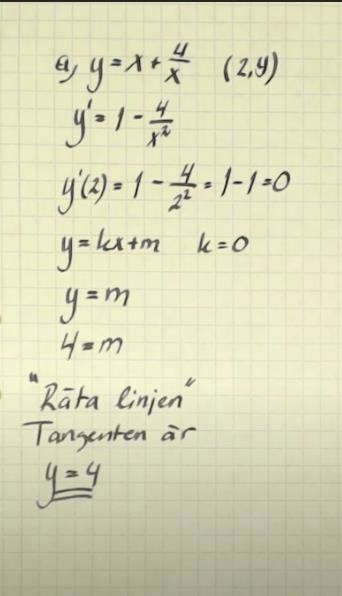 a) y = x + 4/x (2,4)
y' = 1 - 4/x²
y'(2) = 1 - 4/2² = 1-1=0
y = kx+m k=0
y = m
4 = m
"Räta linjen"
Tangenten är
y = 4